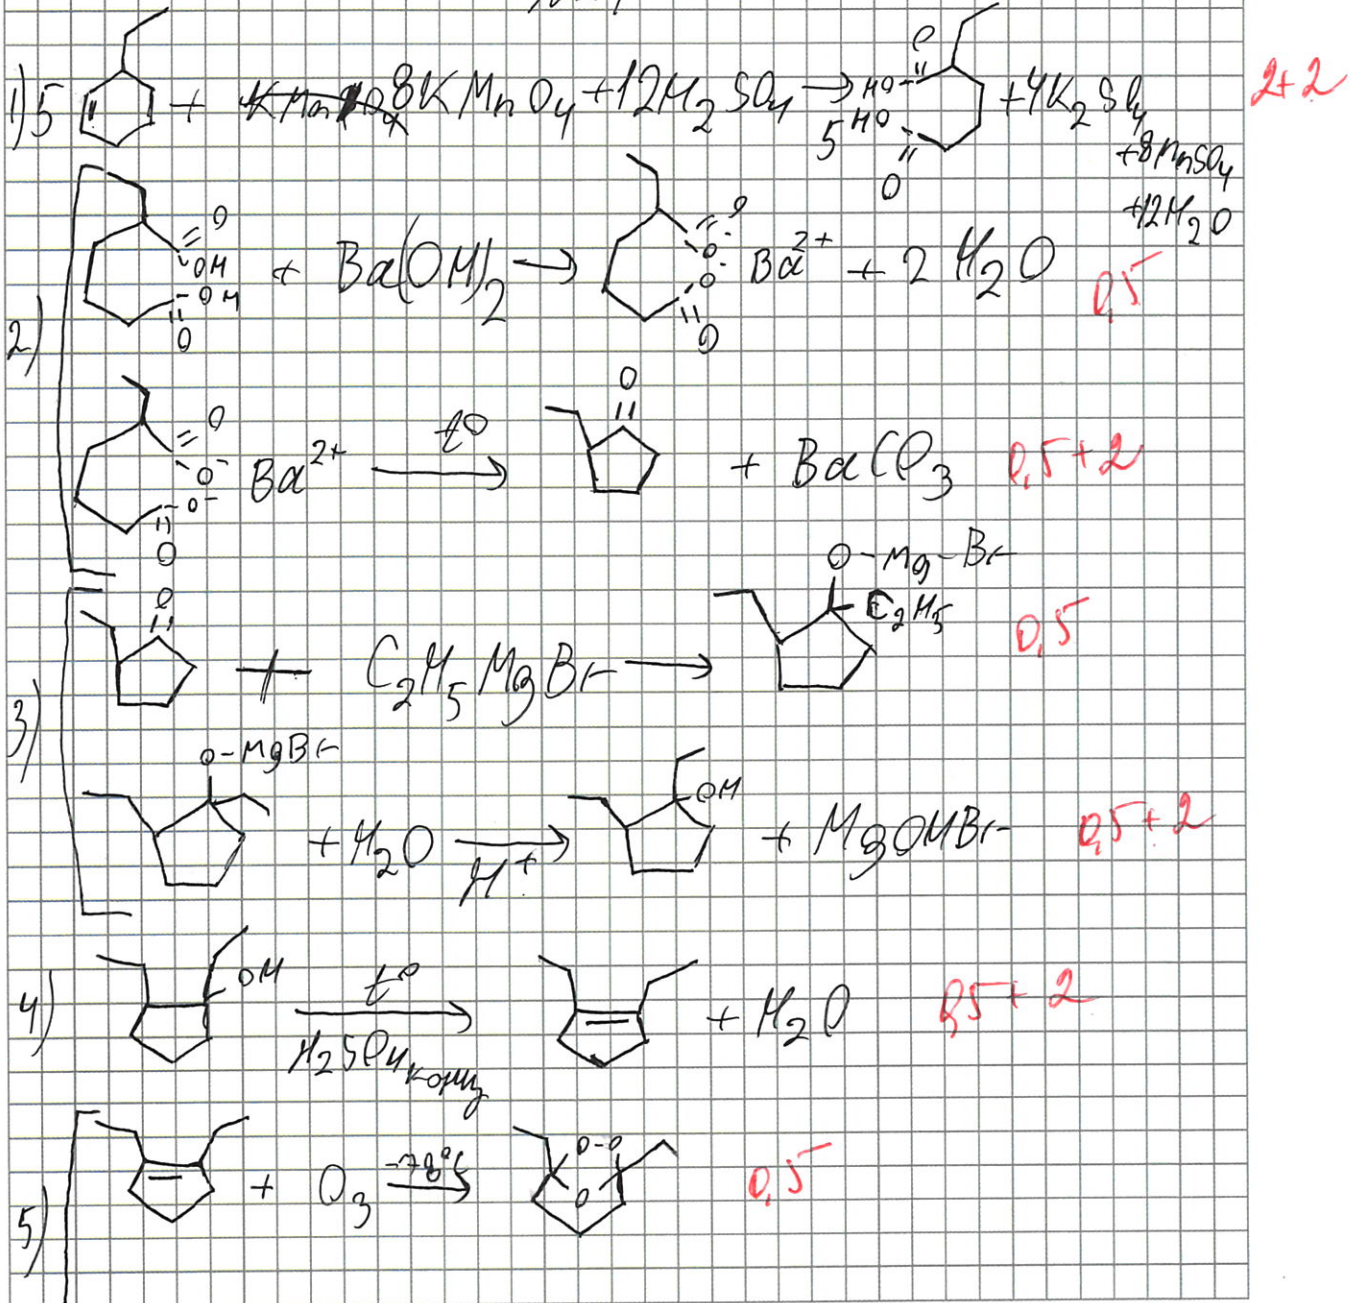 1) 5 + 8KMnO4 + 12H2SO4 → 5 HO O HO O + 4K2SO4 2+2
+8MnSO4
+12H2O
2) O OH OH O + Ba(OH)2 → O O O O Ba2+ + 2H2O 0,5
O O- O- O Ba2+ t° → O + BaCO3 0,5+2
3) O + C2H5MgBr → O-Mg-Br C2H5 0,5
O-MgBr + H2O H+ → OH + MgOHBr 0,5+2
4) OH t° H2SO4 конц → + H2O 0,5+2
5) + O3 -78°C → O-O O 0,5